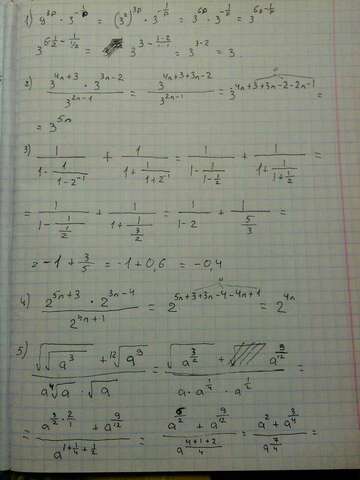 1) 9^{3p} · 3^{-1/p} = (3^2)^{3p} · 3^{-1/p} = 3^{6p} · 3^{-1/p} = 3^{6p-1/p}
3^{6\frac{1}{2} - \frac{1}{1/2}} = 3^{3 - \frac{1·2}{1}} = 3^{3-2} = 3.
2) \frac{3^{4n+3} · 3^{3n-2}}{3^{2n-1}} = \frac{3^{4n+3+3n-2}}{3^{2n-1}} = 3^{4n+3+3n-2-2n-1} =
= 3^{5n}
3) \frac{1}{1-\frac{1}{1-2^{-1}}} + \frac{1}{1+\frac{1}{1+2^{-1}}} = \frac{1}{1-\frac{1}{1-\frac{1}{2}}} + \frac{1}{1+\frac{1}{1+\frac{1}{2}}} =
= \frac{1}{1-\frac{1}{\frac{1}{2}}} + \frac{1}{1+\frac{1}{\frac{3}{2}}} = \frac{1}{1-2} + \frac{1}{\frac{5}{3}} =
= -1 + \frac{3}{5} = -1 + 0,6 = -0,4
4) \frac{2^{5n+3} · 2^{3n-4}}{2^{4n+1}} = 2^{5n+3+3n-4-4n+1} = 2^{4n}
5) \frac{\sqrt{\sqrt{a^3}} + \sqrt[12]{a^9}}{a\sqrt[4]{a} · \sqrt{a}} = \frac{\sqrt{a^{\frac{3}{2}}} + a^{\frac{9}{12}}}{a · a^{\frac{1}{4}} · a^{\frac{1}{2}}} =
= \frac{a^{\frac{3}{2}·\frac{2}{1}} + a^{\frac{9}{12}}}{a^{1+\frac{1}{4}+\frac{1}{2}}} = \frac{a^{\frac{6}{2}} + a^{\frac{9}{12}}}{a^{\frac{4+1+2}{4}}} = \frac{a^2 + a^{\frac{3}{4}}}{a^{\frac{7}{4}}} =